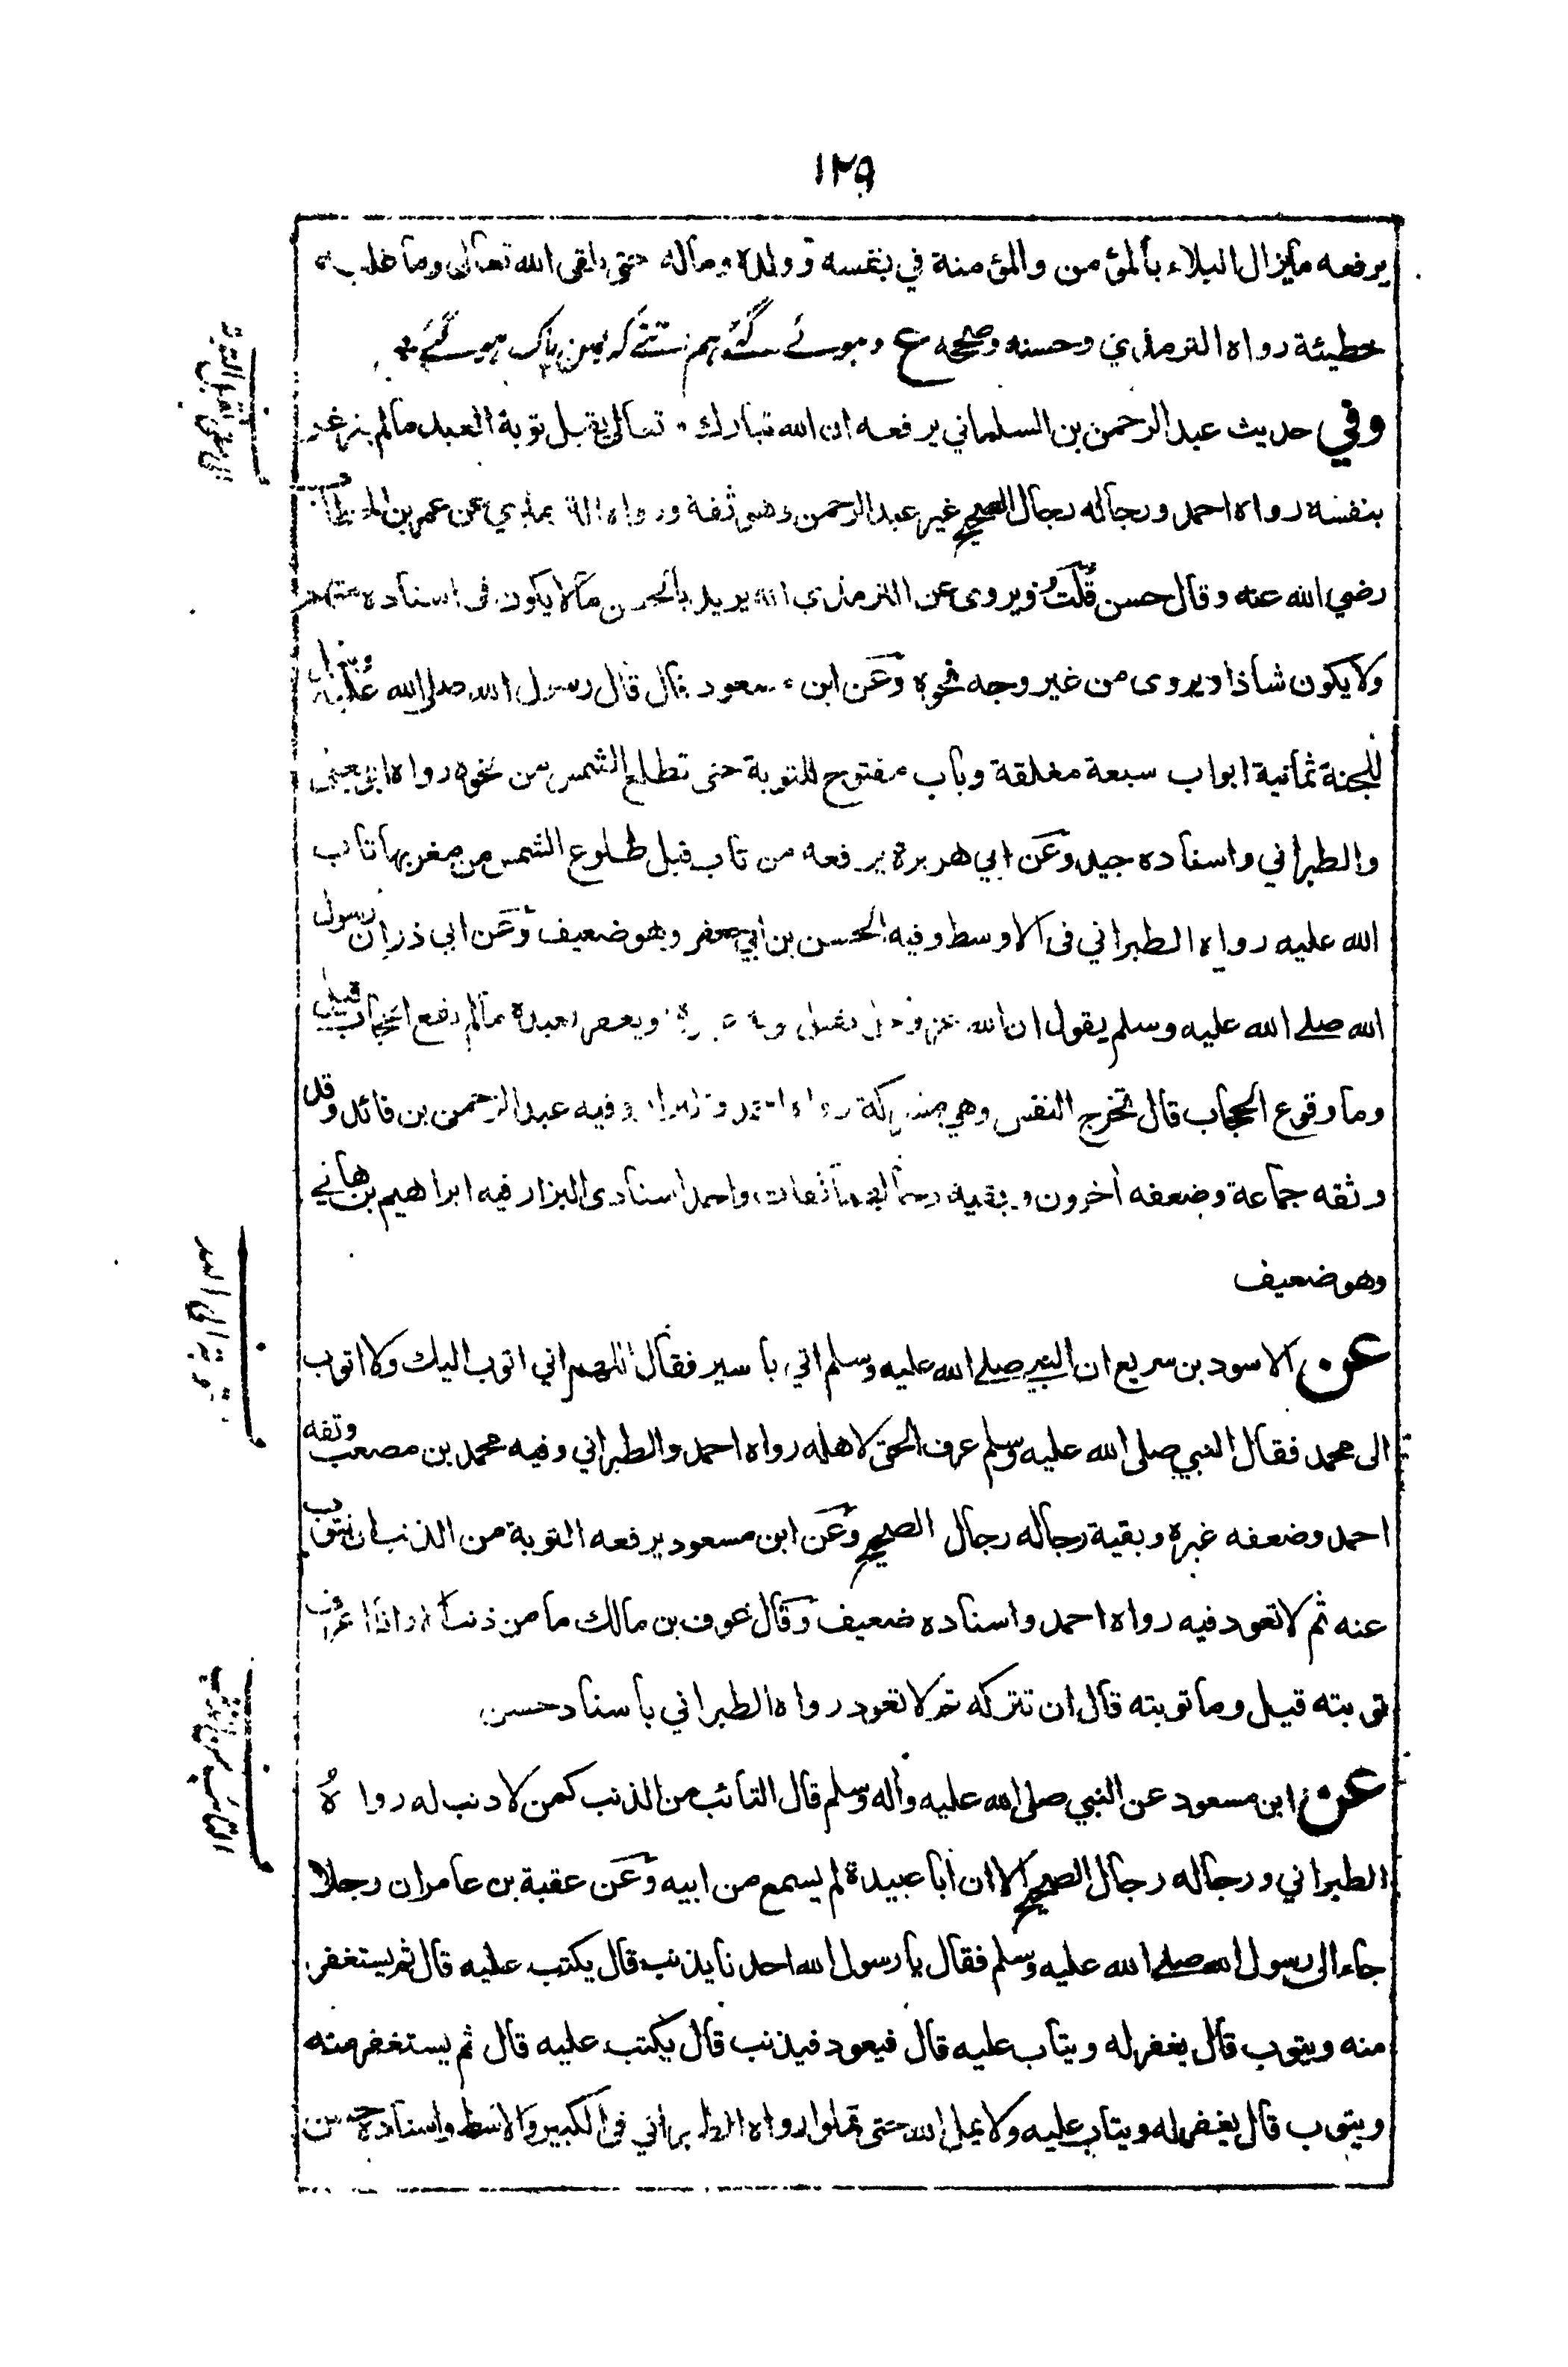 ١٢٩
يرفعه مايزال البلاء بالمؤمن والمؤمنة في نفسه وولده وماله حتى يلقى الله تعالى وما عليه
خطيئة رواه الترمذي وحسنه وصححه ع
وفي حديث عبد الرحمن بن السلماني يرفعه ان الله تبارك وتعالى يقبل توبة العبد مالم يغرغر
بنفسه رواه احمد ورجاله رجال الصحيح غير عبد الرحمن وهو ثقة ورواه الترمذي عن عمر بن الخطاب
رضي الله عنه وقال حسن قلت ويروى عن الترمذي انه يريد بالحسن مالا يكون فى اسناده متهم
ولا يكون شاذا ويروى من غير وجه نحوه وعن ابن مسعود قال قال رسول الله صلى الله عليه
للجنة ثمانية ابواب سبعة مغلقة وباب مفتوح للتوبة حتى تطلع الشمس من نحوه رواه ابو يعلى
والطبراني واسناده جيد وعن ابي هريرة يرفعه من تاب قبل طلوع الشمس من مغربها تاب
الله عليه رواه الطبراني فى الاوسط وفيه الحسن بن ابي جعفر وهو ضعيف وعن ابي ذر ان رسول
الله صلے الله عليه وسلم يقول ان الله عز وجل يقبل توبة عبده ويغفر لعبده مالم يقع الحجاب قيل
وما وقوع الحجاب قال تخرج النفس وهي مشركة رواه احمد والبزار وفيه عبد الرحمن بن فائد وقد
وثقه جماعة وضعفه اخرون وبقية رجالهما ثقات واحد اسنادى البزار فيه ابراهيم بن هانے
وهو ضعيف
عن الاسود بن سريع ان النبي صلے الله عليه وسلم اتي باسير فقال اللهم اني اتوب اليك ولا اتوب
الى محمد فقال النبي صلى الله عليه وسلم عرف الحق لاهله رواه احمد والطبراني وفيه محمد بن مصعب وثقه
احمد وضعفه غيره وبقية رجاله رجال الصحيح وعن ابن مسعود يرفعه التوبة من الذنب ان يتوب
عنه ثم لا تعود فيه رواه احمد واسناده ضعيف وقال عوف بن مالك ما من ذنب الا وانا اعرف
توبته قيل وما توبته قال ان تتركه ثم لا تعود رواه الطبراني باسناد حسن
عن ابن مسعود عن النبي صلى الله عليه وآله وسلم قال التائب من الذنب كمن لا ذنب له رواه
الطبراني ورجاله رجال الصحيح الا ان ابا عبيدة لم يسمع من ابيه وعن عقبة بن عامر ان رجلا
جاء الى رسول الله صلے الله عليه وسلم فقال يا رسول الله احدنا يذنب قال يكتب عليه قال ثم يستغفر
منه ويتوب قال يغفر له ويتاب عليه قال فيعود فيذنب قال يكتب عليه قال ثم يستغفر منه
ويتوب قال يغفر له ويتاب عليه ولا يمل الله حتى تملوا رواه الطبراني فى الكبير والاوسط واسناده حسن